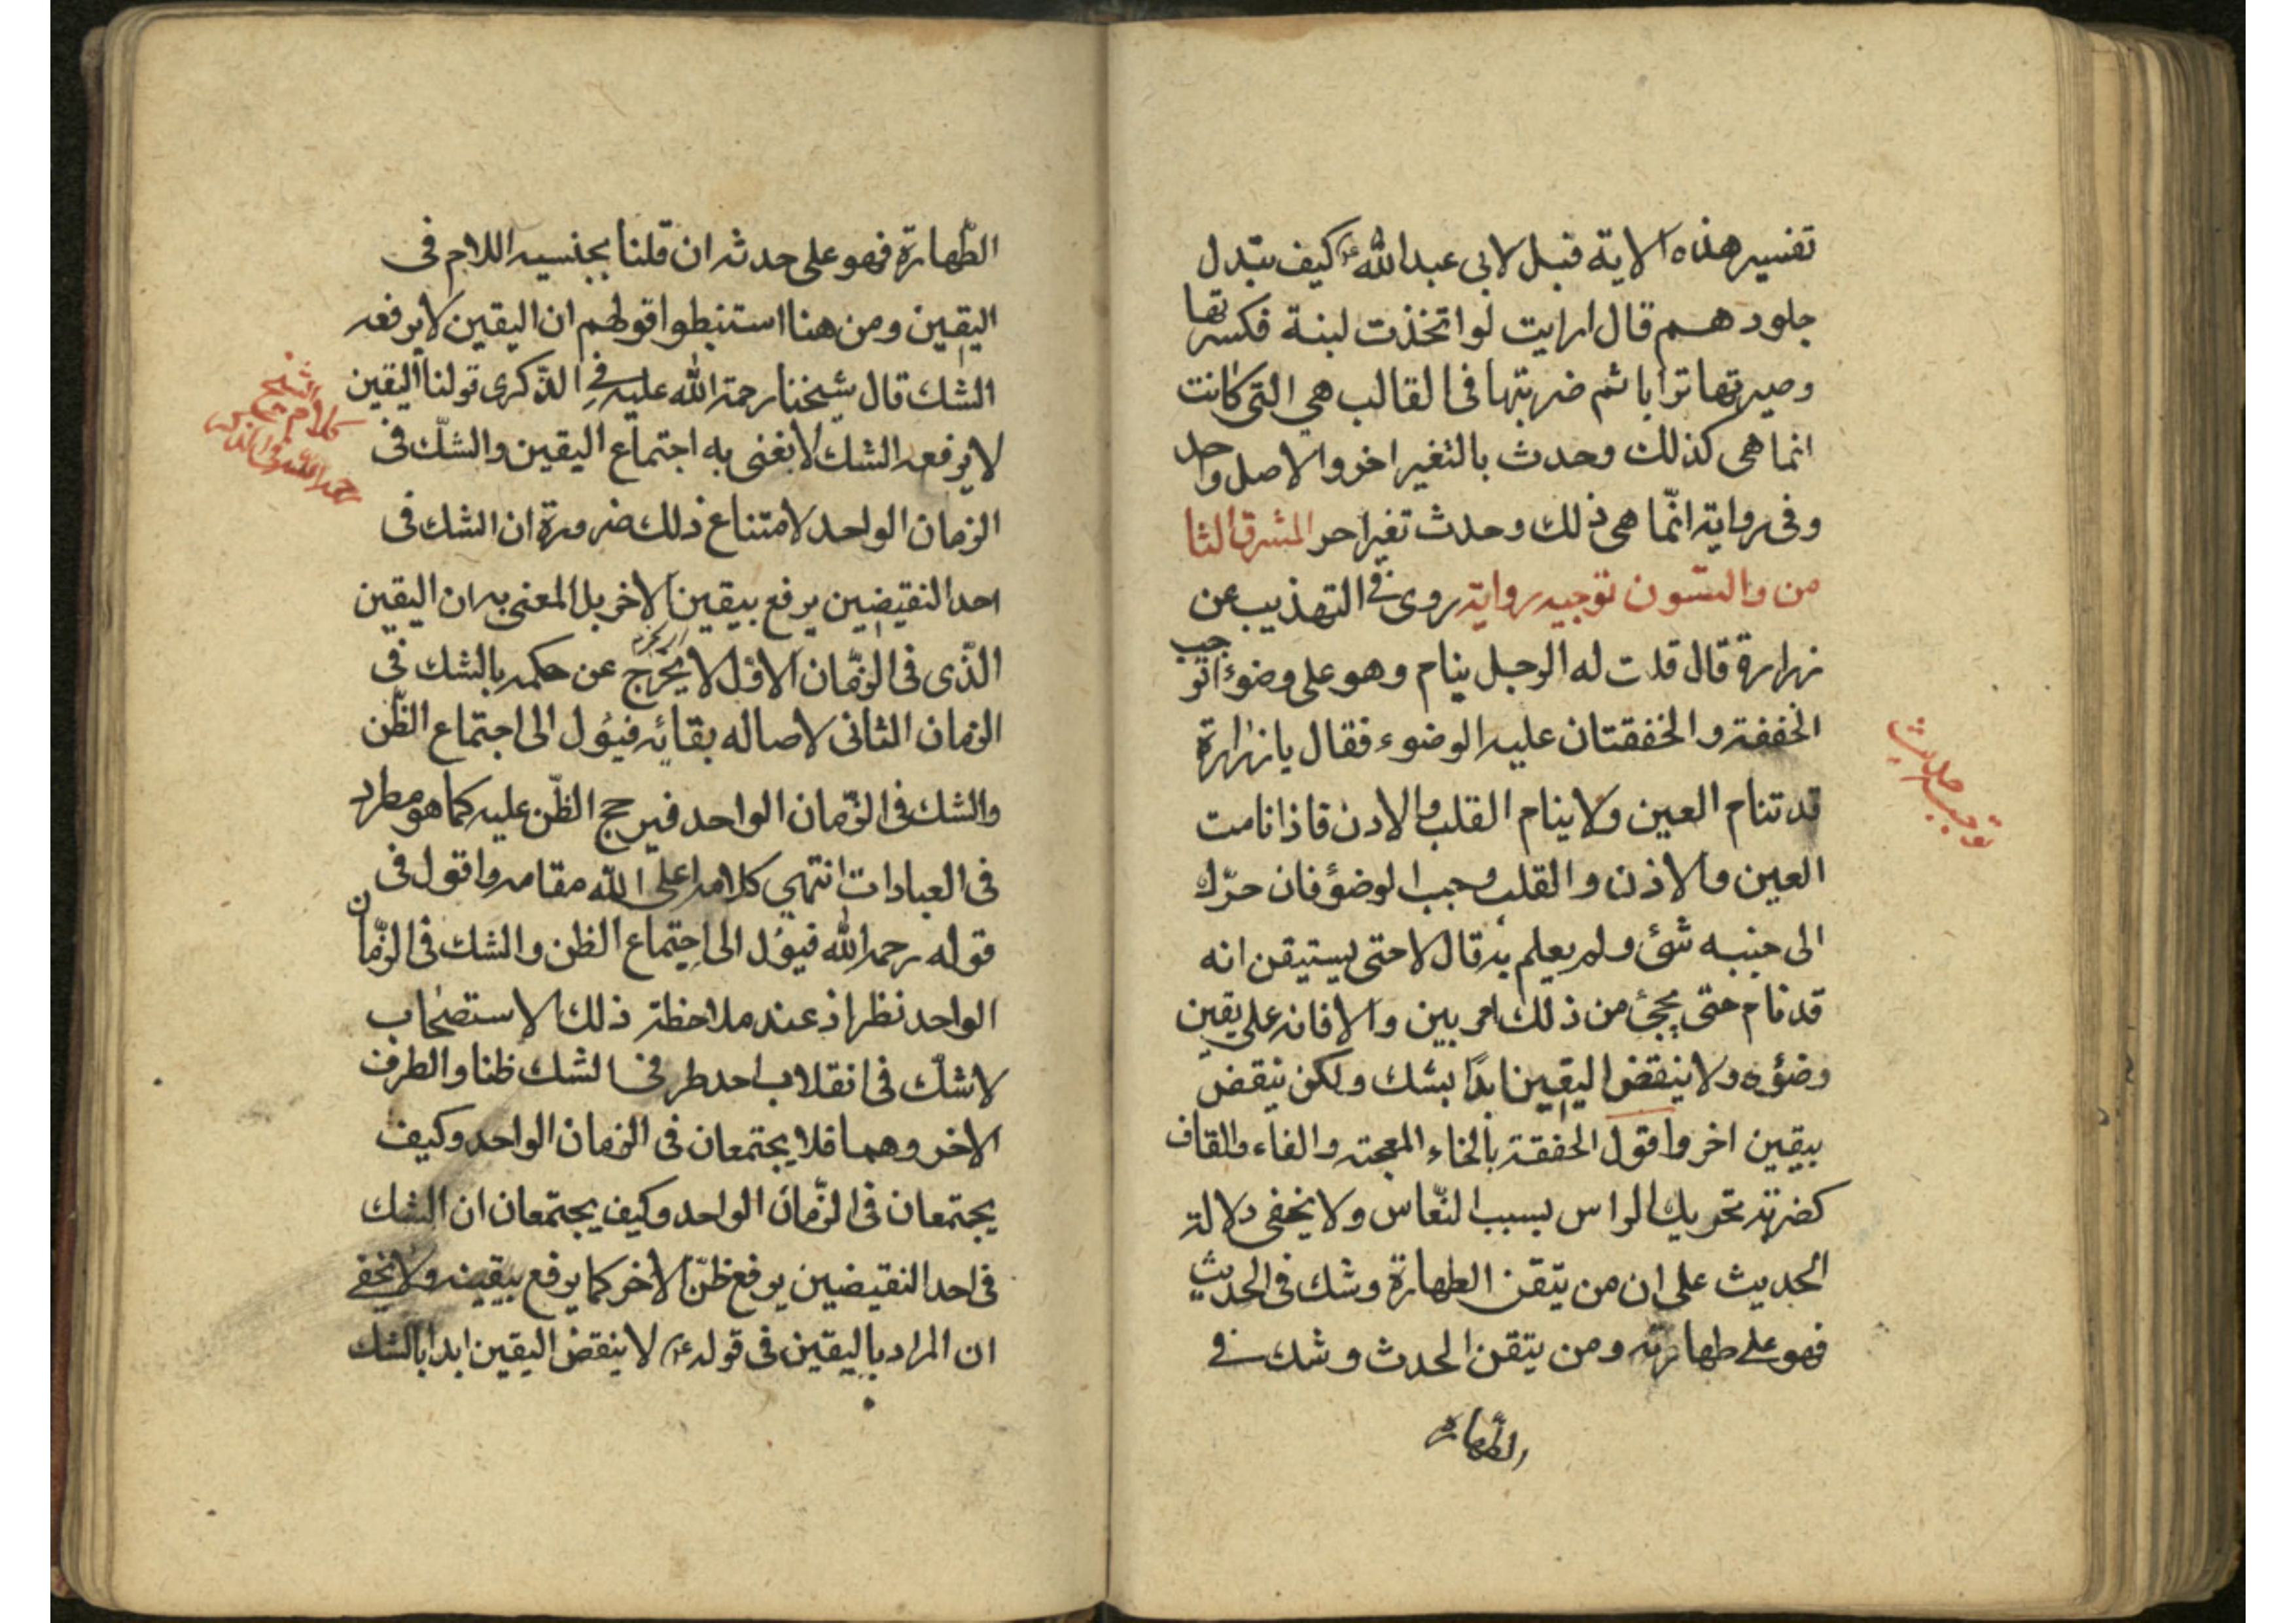 تفسير هذه الاية قيل لابى عبد الله ع كيف تبدل
جلود هم قال ارايت لو اتخذت لبنة فكسرتها
وصيرتها ترابا ثم ضربتها فى القالب هي التى كانت
انما هى كذلك وحدث بالتغير اخر والاصل واحد
وفى رواية انّما هى ذلك وحدث تغير اخر المشرق الثا
من والستون توجيه رواية روى فى التهذيب عن
زرارة قال قلت له الرجل ينام وهو على وضوء اتوجب
الخفقة والخفقتان عليه الوضوء فقال يا زرارة
قد تنام العين ولا ينام القلب والاذن فاذا نامت
العين والاذن والقلب وجب الوضؤ فان حرّك
الى جنبه شئ ولم يعلم به قال لا حتى يستيقن انه
قد نام حتى يجئ من ذلك امر بين والا فانه على يقين
وضؤه ولا ينقض اليقين ابدًا بشك ولكن ينقض
بيقين اخر واقول الخفقة بالخاء المعجمة والفاء والقاف
كضربة تحريك الراس بسبب النّعاس ولا يخفى دلالة
الحديث على ان من يتقن الطهارة وشك فى الحديث
فهو على طهارته ومن يتقن الحدث وشك فى
الطّهارة
توجيه حديث
الطّهارة فهو على حدثه ان قلنا بجنسيه اللام فى
اليقين ومن هنا استنبطوا قولهم ان اليقين لا يرفعه
الشك قال شيخنا رحمة الله عليه فى الذّكرى قولنا اليقين
لا يرفعه الشك لا نغنى به اجتماع اليقين والشّك فى
الزمان الواحد لامتناع ذلك ضرورة ان الشك فى
احد النقيضين يرفع بيقين الاخر بل المعنى به ان اليقين
الّذى فى الزّمان الاوّل لا يخرج عن حكمه بالشك فى
الزمان الثانى لاصاله بقائه فيئول الى اجتماع الظّن
والشك فى الزّمان الواحد فيرجح الظّن عليه كما هو مطرد
فى العبادات انتهي كلامه اعلى الله مقامه واقول فى
قوله رحمه الله فيؤل الى اجتماع الظن والشك فى الزّمان
الواحد نظر اذ عند ملاحظة ذلك الاستصحاب
لا شكّ فى انقلاب احد طرفى الشك ظنا والطرف
الاخر وهما فلا يجتمعان فى الزمان الواحد وكيف
يجتمعان فى الزّمان الواحد وكيف يجتمعان ان الشك
فى احد النقيضين يرفع ظنّ الاخر كما يرفع بيقينه ولا يخفى
ان المراد باليقين فى قوله ع لا ينقض اليقين ابدا بالشك
كلام الشيخ